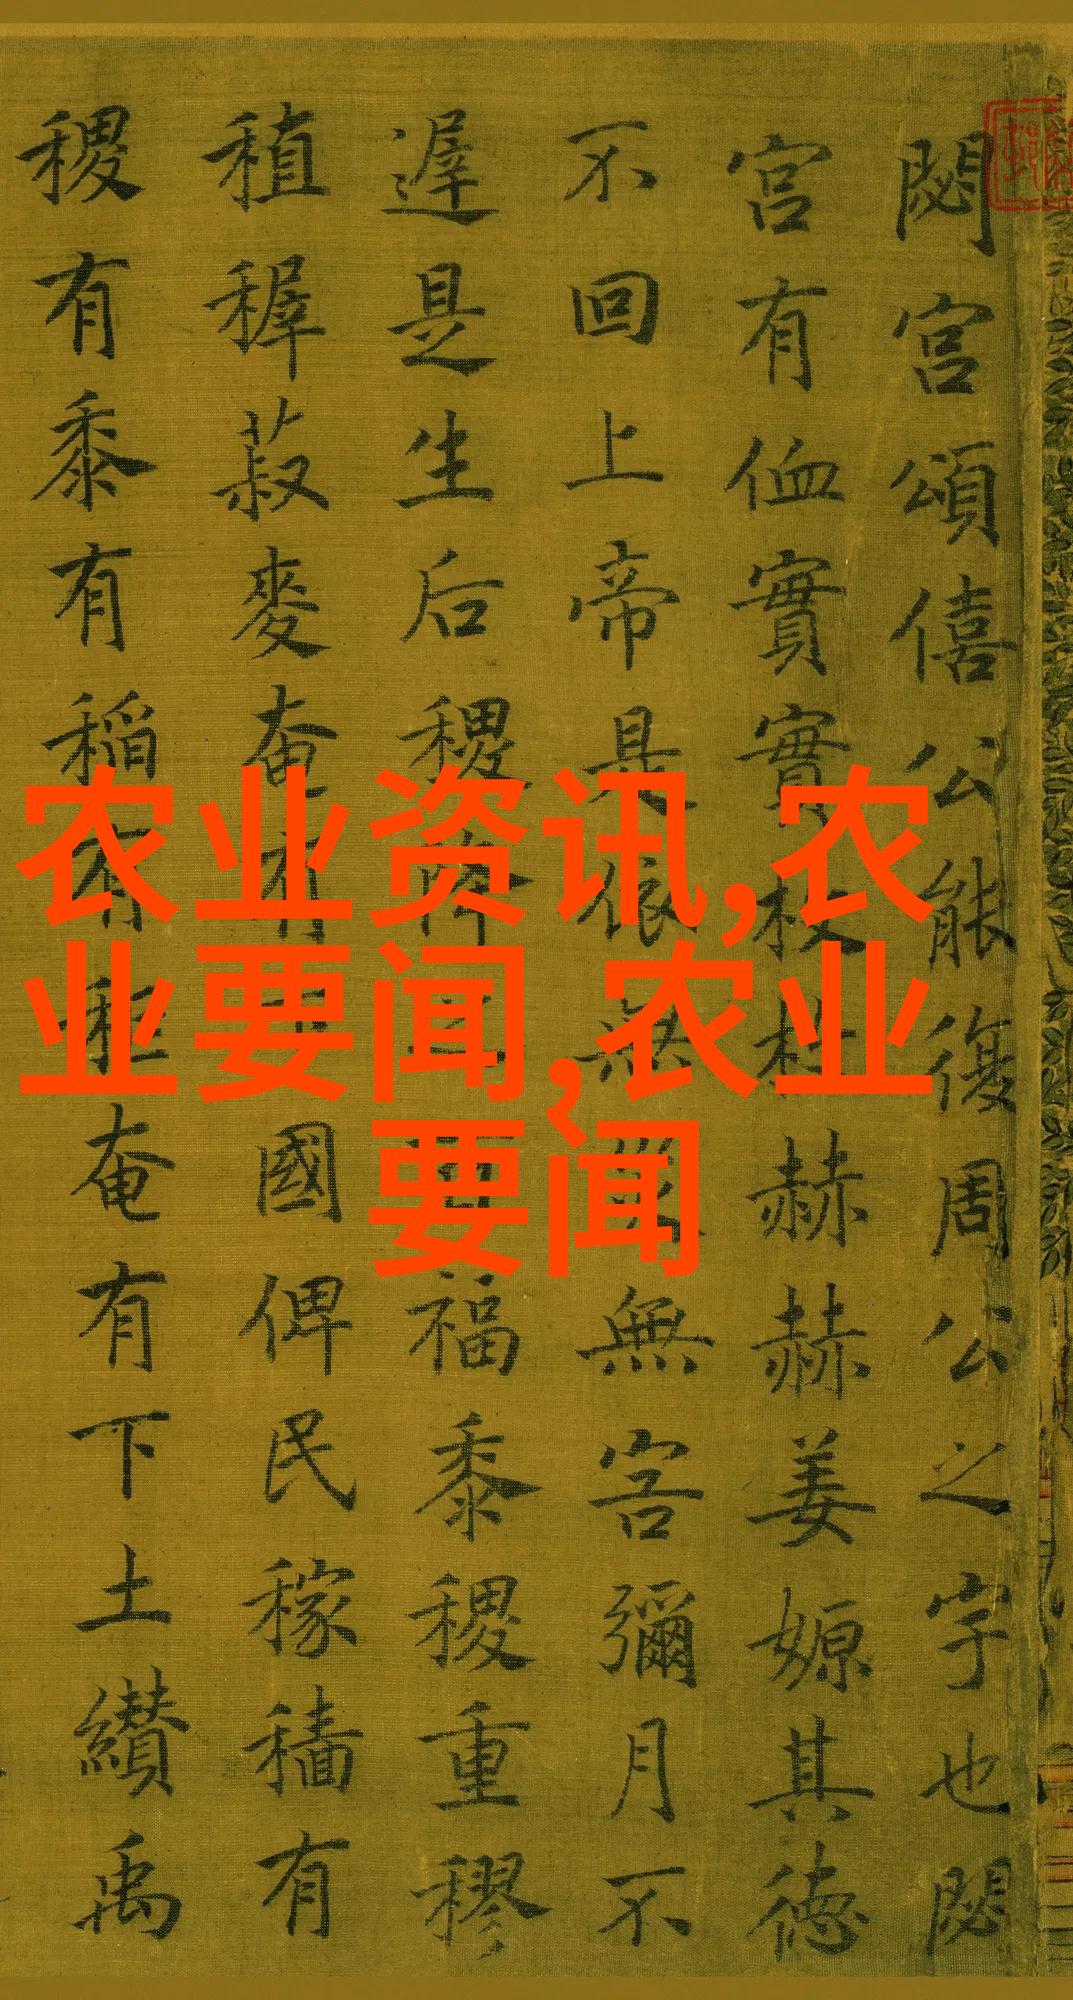 农业资讯,农
业要闻,农业
要闻
閟宮頌僖公能復周公之宇也閟
宮有侐實實枚枚赫赫姜嫄其德
不回上帝是依無災無害彌月不
遲是生后稷降之百福黍稷重穋
稙稺菽麥奄有下國俾民稼穡有
稷有黍有稻有秬奄有下土纘禹